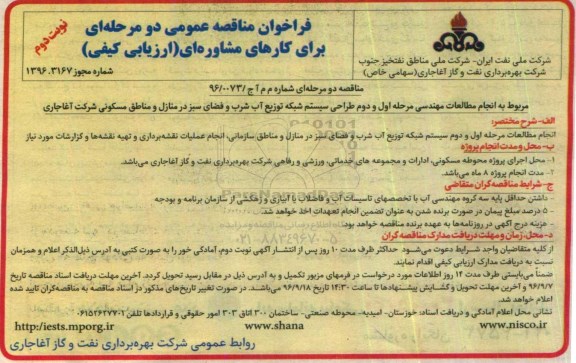 نوبت دوم
فراخوان مناقصه عمومی دو مرحله‌ای
برای کارهای مشاوره‌ای(ارزیابی کیفی)
شماره مجوز ۱۳۹۶.۳۱۶۷
شرکت ملی نفت ایران- شرکت ملی مناطق نفتخیز جنوب
شرکت بهره‌برداری نفت و گاز آغاجاری(سهامی خاص)
مناقصه دو مرحله‌ای شماره م م آ ج /۹۶/۰۰۷۳
مربوط به انجام مطالعات مهندسی مرحله اول و دوم طراحی سیستم شبکه توزیع آب شرب و فضای سبز در منازل و مناطق مسکونی شرکت آغاجاری
الف- شرح مختصر:
انجام مطالعات مرحله اول و دوم سیستم شبکه توزیع آب شرب و فضای سبز در منازل و مناطق سازمانی، انجام عملیات نقشه‌برداری و تهیه نقشه‌ها و گزارشات مورد نیاز
ب- محل و مدت انجام پروژه
۱- محل اجرای پروژه محوطه مسکونی، ادارات و مجموعه های خدماتی، ورزشی و رفاهی شرکت بهره‌برداری نفت و گاز آغاجاری می‌باشد.
۲- مدت انجام پروژه ۸ ماه می‌باشد.
ج- شرایط مناقصه‌گران متقاضی
- داشتن حداقل پایه سه گروه مهندسی آب با تخصصهای تاسیسات آب و فاضلاب یا آبیاری و زهکشی از سازمان برنامه و بودجه
- ۵ درصد مبلغ پیمان در صورت برنده شدن به عنوان تضمین انجام تعهدات اخذ خواهد شد.
- هزینه درج آگهی در روزنامه‌ها به عهده برنده مناقصه خواهد بود.
د- محل، زمان و مهلت دریافت مدارک مناقصه‌گران
از کلیه متقاضیان واجد شرایط دعوت می‌شود حداکثر ظرف مدت ۱۰ روز پس از انتشار آگهی نوبت دوم، آمادگی خود را به صورت کتبی به آدرس ذیل‌الذکر اعلام و همزمان
نسبت به دریافت مدارک ارزیابی کیفی اقدام نمایند.
ضمناً می‌بایستی ظرف مدت ۱۴ روز اطلاعات مورد درخواست در فرمهای مزبور تکمیل و به آدرس ذیل در مقابل رسید تحویل گردد. آخرین مهلت دریافت اسناد مناقصه تاریخ
۹۶/۹/۷ و آخرین مهلت تحویل و گشایش پیشنهادها تا ساعت ۱۴:۳۰ تاریخ ۹۶/۹/۱۸ می‌باشد. در صورت تغییر تاریخ‌های مذکور در اسناد مناقصه به مناقصه‌گران تایید شده
اعلام خواهد شد.
نشانی محل اعلام آمادگی و دریافت اسناد: خوزستان- امیدیه- محوطه صنعتی- ساختمان ۳۰۰ اتاق ۳۰۳ امور حقوقی و قراردادها تلفن ۰۶۱۵۲۶۲۷۷۰۱
http://iests.mporg.ir
www.shana
www.nisco.ir
روابط عمومی شرکت بهره‌برداری نفت و گاز آغاجاری
ParsNamadData